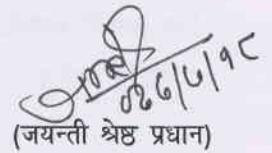 ०६८/५/१८
(जयन्ती श्रेष्ठ प्रधान)